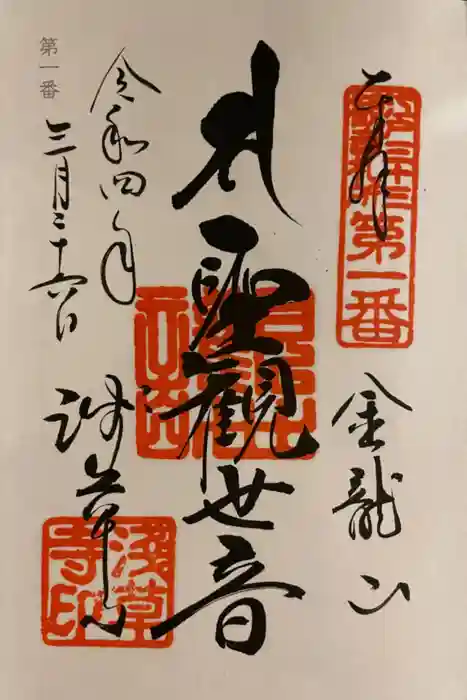 奉拝
第一番
金龍山
聖観世音
令和四年
三月二十六日
浅草寺
浅草寺印
第一番